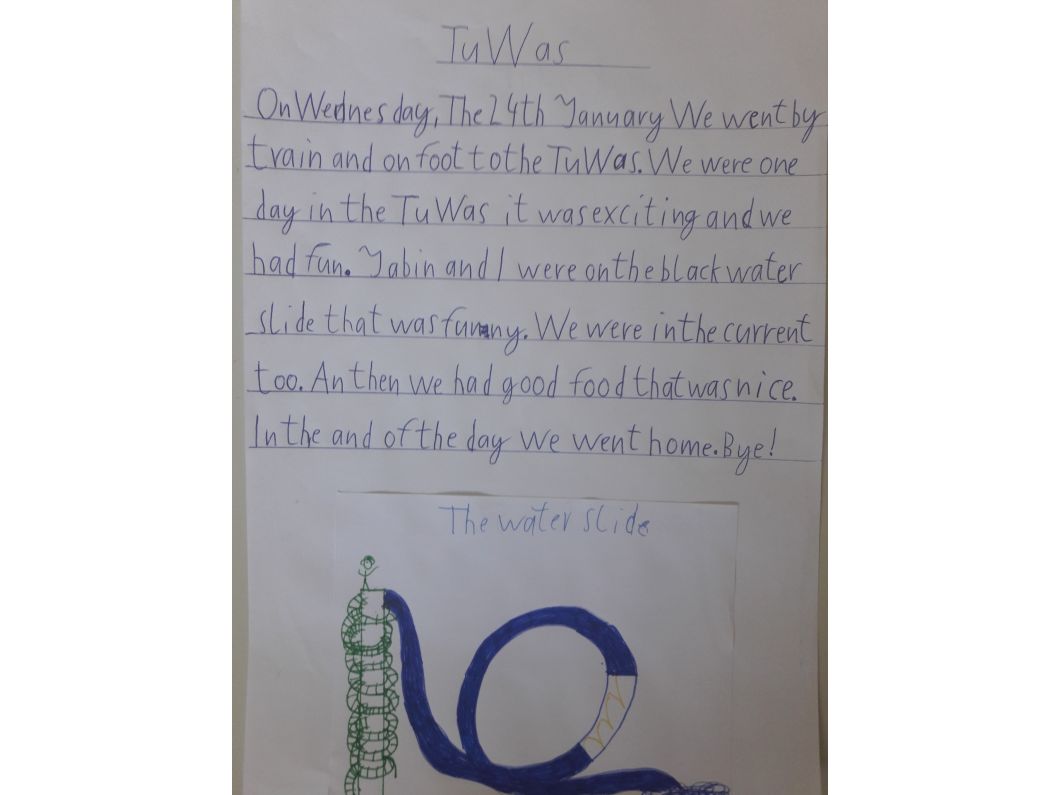 TuWas
On Wednesday, The 24th Yanuary We went by
train and on foot to the TuWas. We were one
day in the TuWas it was exciting and we
had fun. Yabin and I were on the black water
slide that was funny. We were in the current
too. An then we had good food that was nice.
In the and of the day we went home. Bye!
The water slide